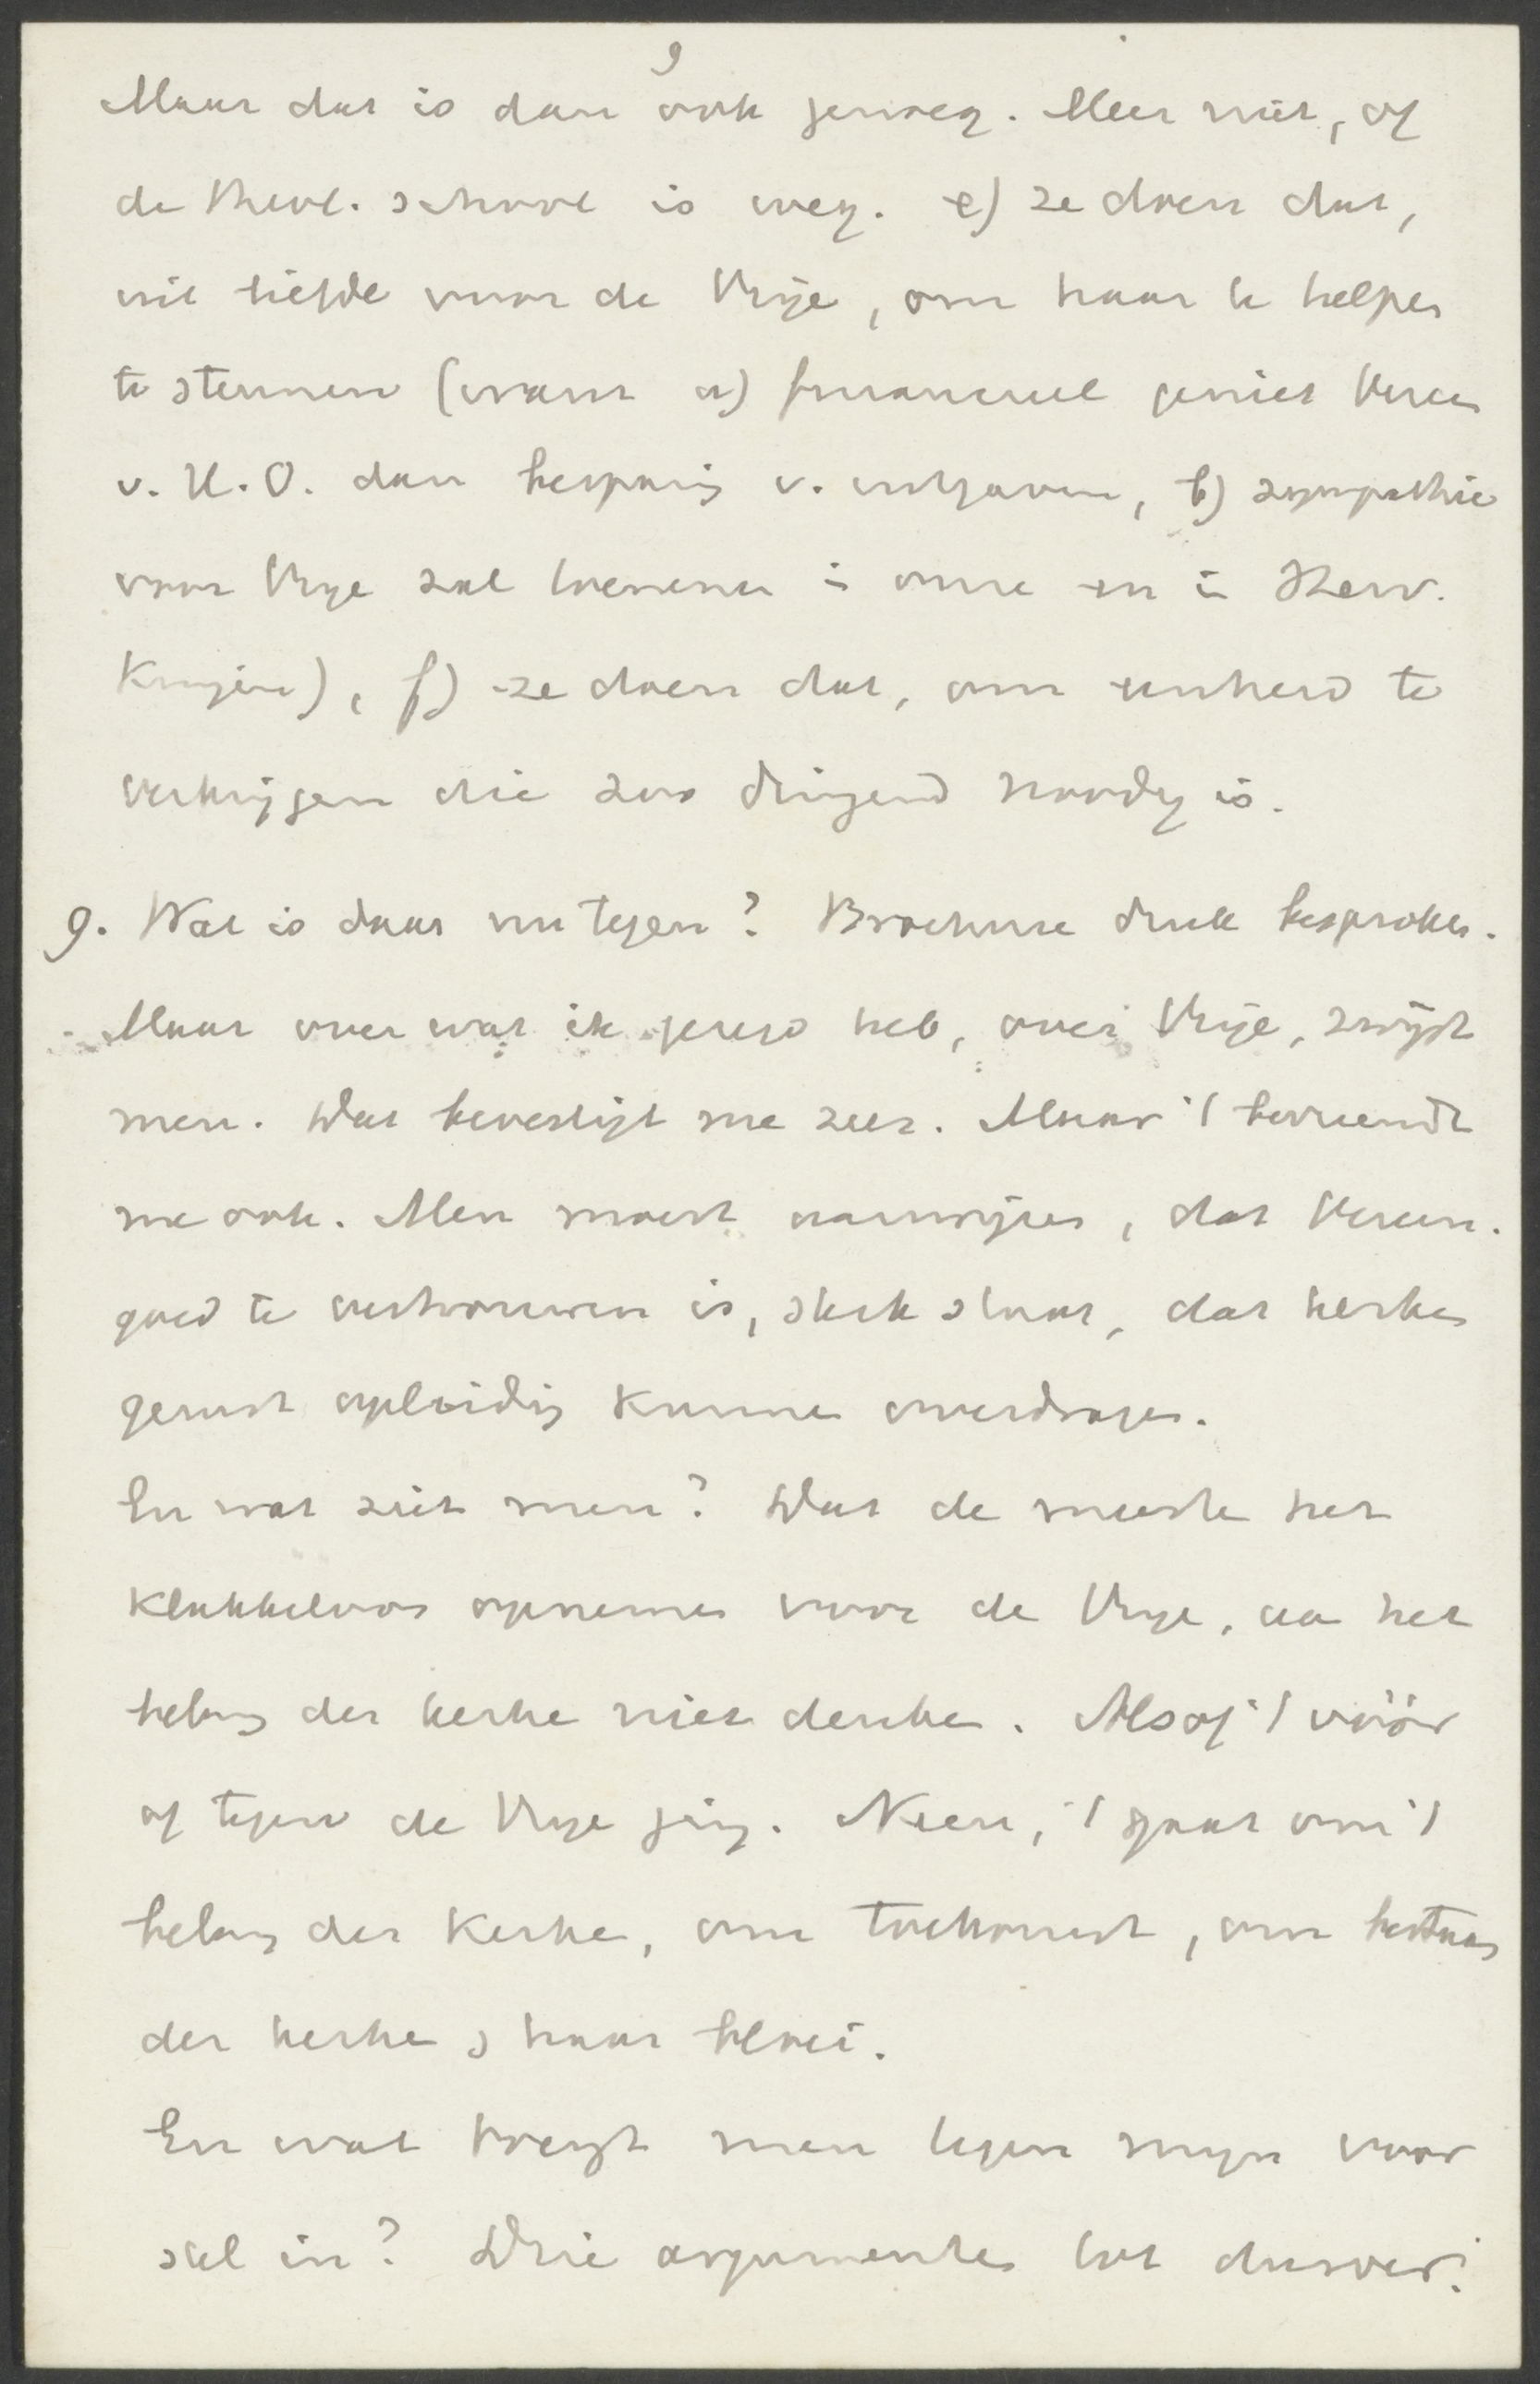 9
Maar dat is dan ook genoeg. Meer niet, of
de Theol. school is weg. e) ze doen dat,
uit liefde voor de Vrije, om haar te helpen
te steunen (want a) financieel geniet Vereen
v. H. O. dan besparing v. uitgaven, b) sympathie
voor Vrije zal toenemen in onze en in Herv.
Kringen), f) ze doen dat, om eenheid te
verkrijgen die zoo dringend noodig is.
9. Wat is daar nu tegen? Brochure druk besproken.
Maar over wat ik gezegd heb, over Vrije, zwijgt
men. Dat bevestigt me zeer. Maar 't bevreemdt
me ook. Men moest aanwijzen, dat Vereen.
goed te vertrouwen is, sterk staat, dat kerken
gerust opleiding kunnen overdragen.
En wat ziet men? Dat de meeste het
klakkeloos opnemen voor de Vrije, aan het
belang der kerken niet denken. Alsof 't vóór
of tegen de Vrije ging. Neen, 't gaat om 't
belang der Kerken, om toekomst, om bestaan
der kerken & haar bloei.
En wat brengt men tegen mijn voor
stel in? Drie argumenten tot dusver: